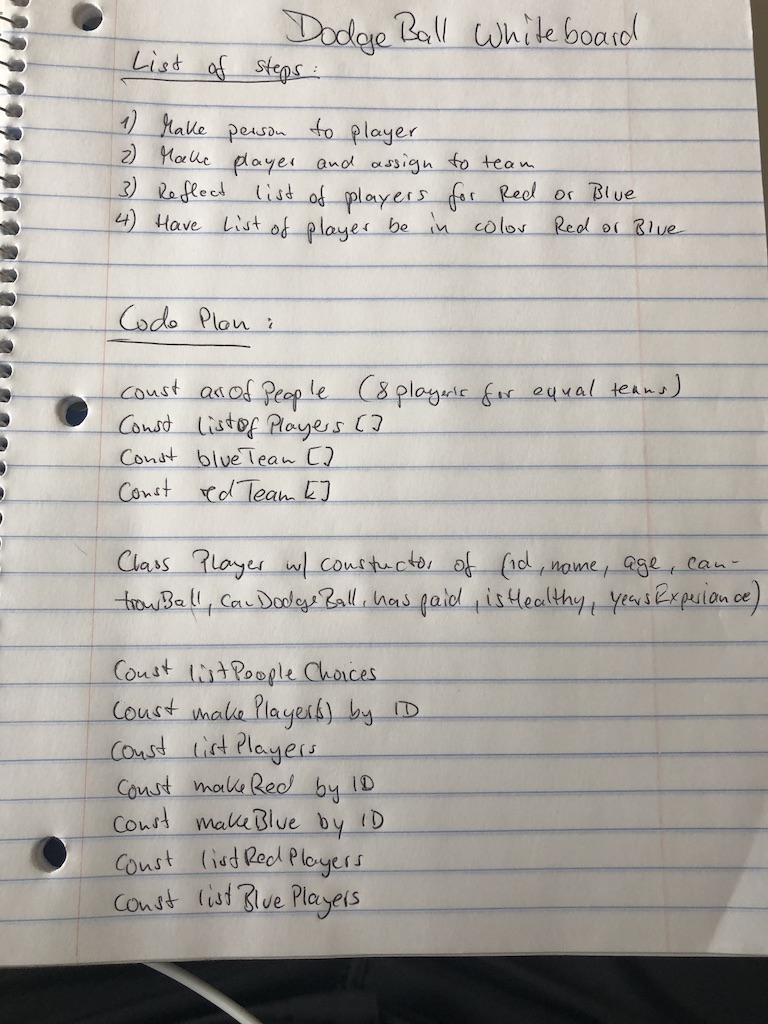 DodgeBall Whiteboard
List of steps:
1) Make person to player
2) Make player and assign to team
3) Reflect list of players for Red or Blue
4) Have List of player be in color Red or Blue
Code Plan :
const arrOfPeople (8 players for equal teams)
Const listOfPlayers []
Const blueTeam []
Const redTeam []
Class Player w/ constuctor of (id, name, age, can-
trowBall, canDodgeBall, has paid, isHealthy, yearsExperiance)
Const listPeopleChoices
Const makePlayer(s) by ID
Const listPlayers
Const makeRed by ID
Const makeBlue by ID
Const listRedPlayers
Const listBluePlayers